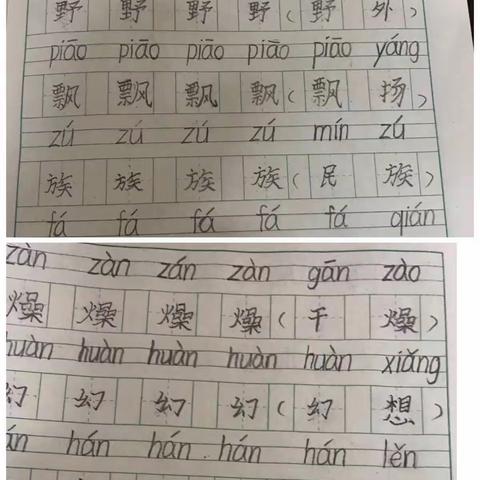 野 野 野 野 ( 野 外 )
piāo piāo piāo piāo piāo yáng
飘 飘 飘 飘 ( 飘 扬 )
zú zú zú zú mín zú
族 族 族 族 ( 民 族 )
fá fá fá fá fá qián
zàn zàn zán zàn gān zào
燥 燥 燥 燥 ( 干 燥 )
huàn huàn huàn huàn huàn xiǎng
幻 幻 幻 幻 ( 幻 想 )
hán hán hán hán lěn